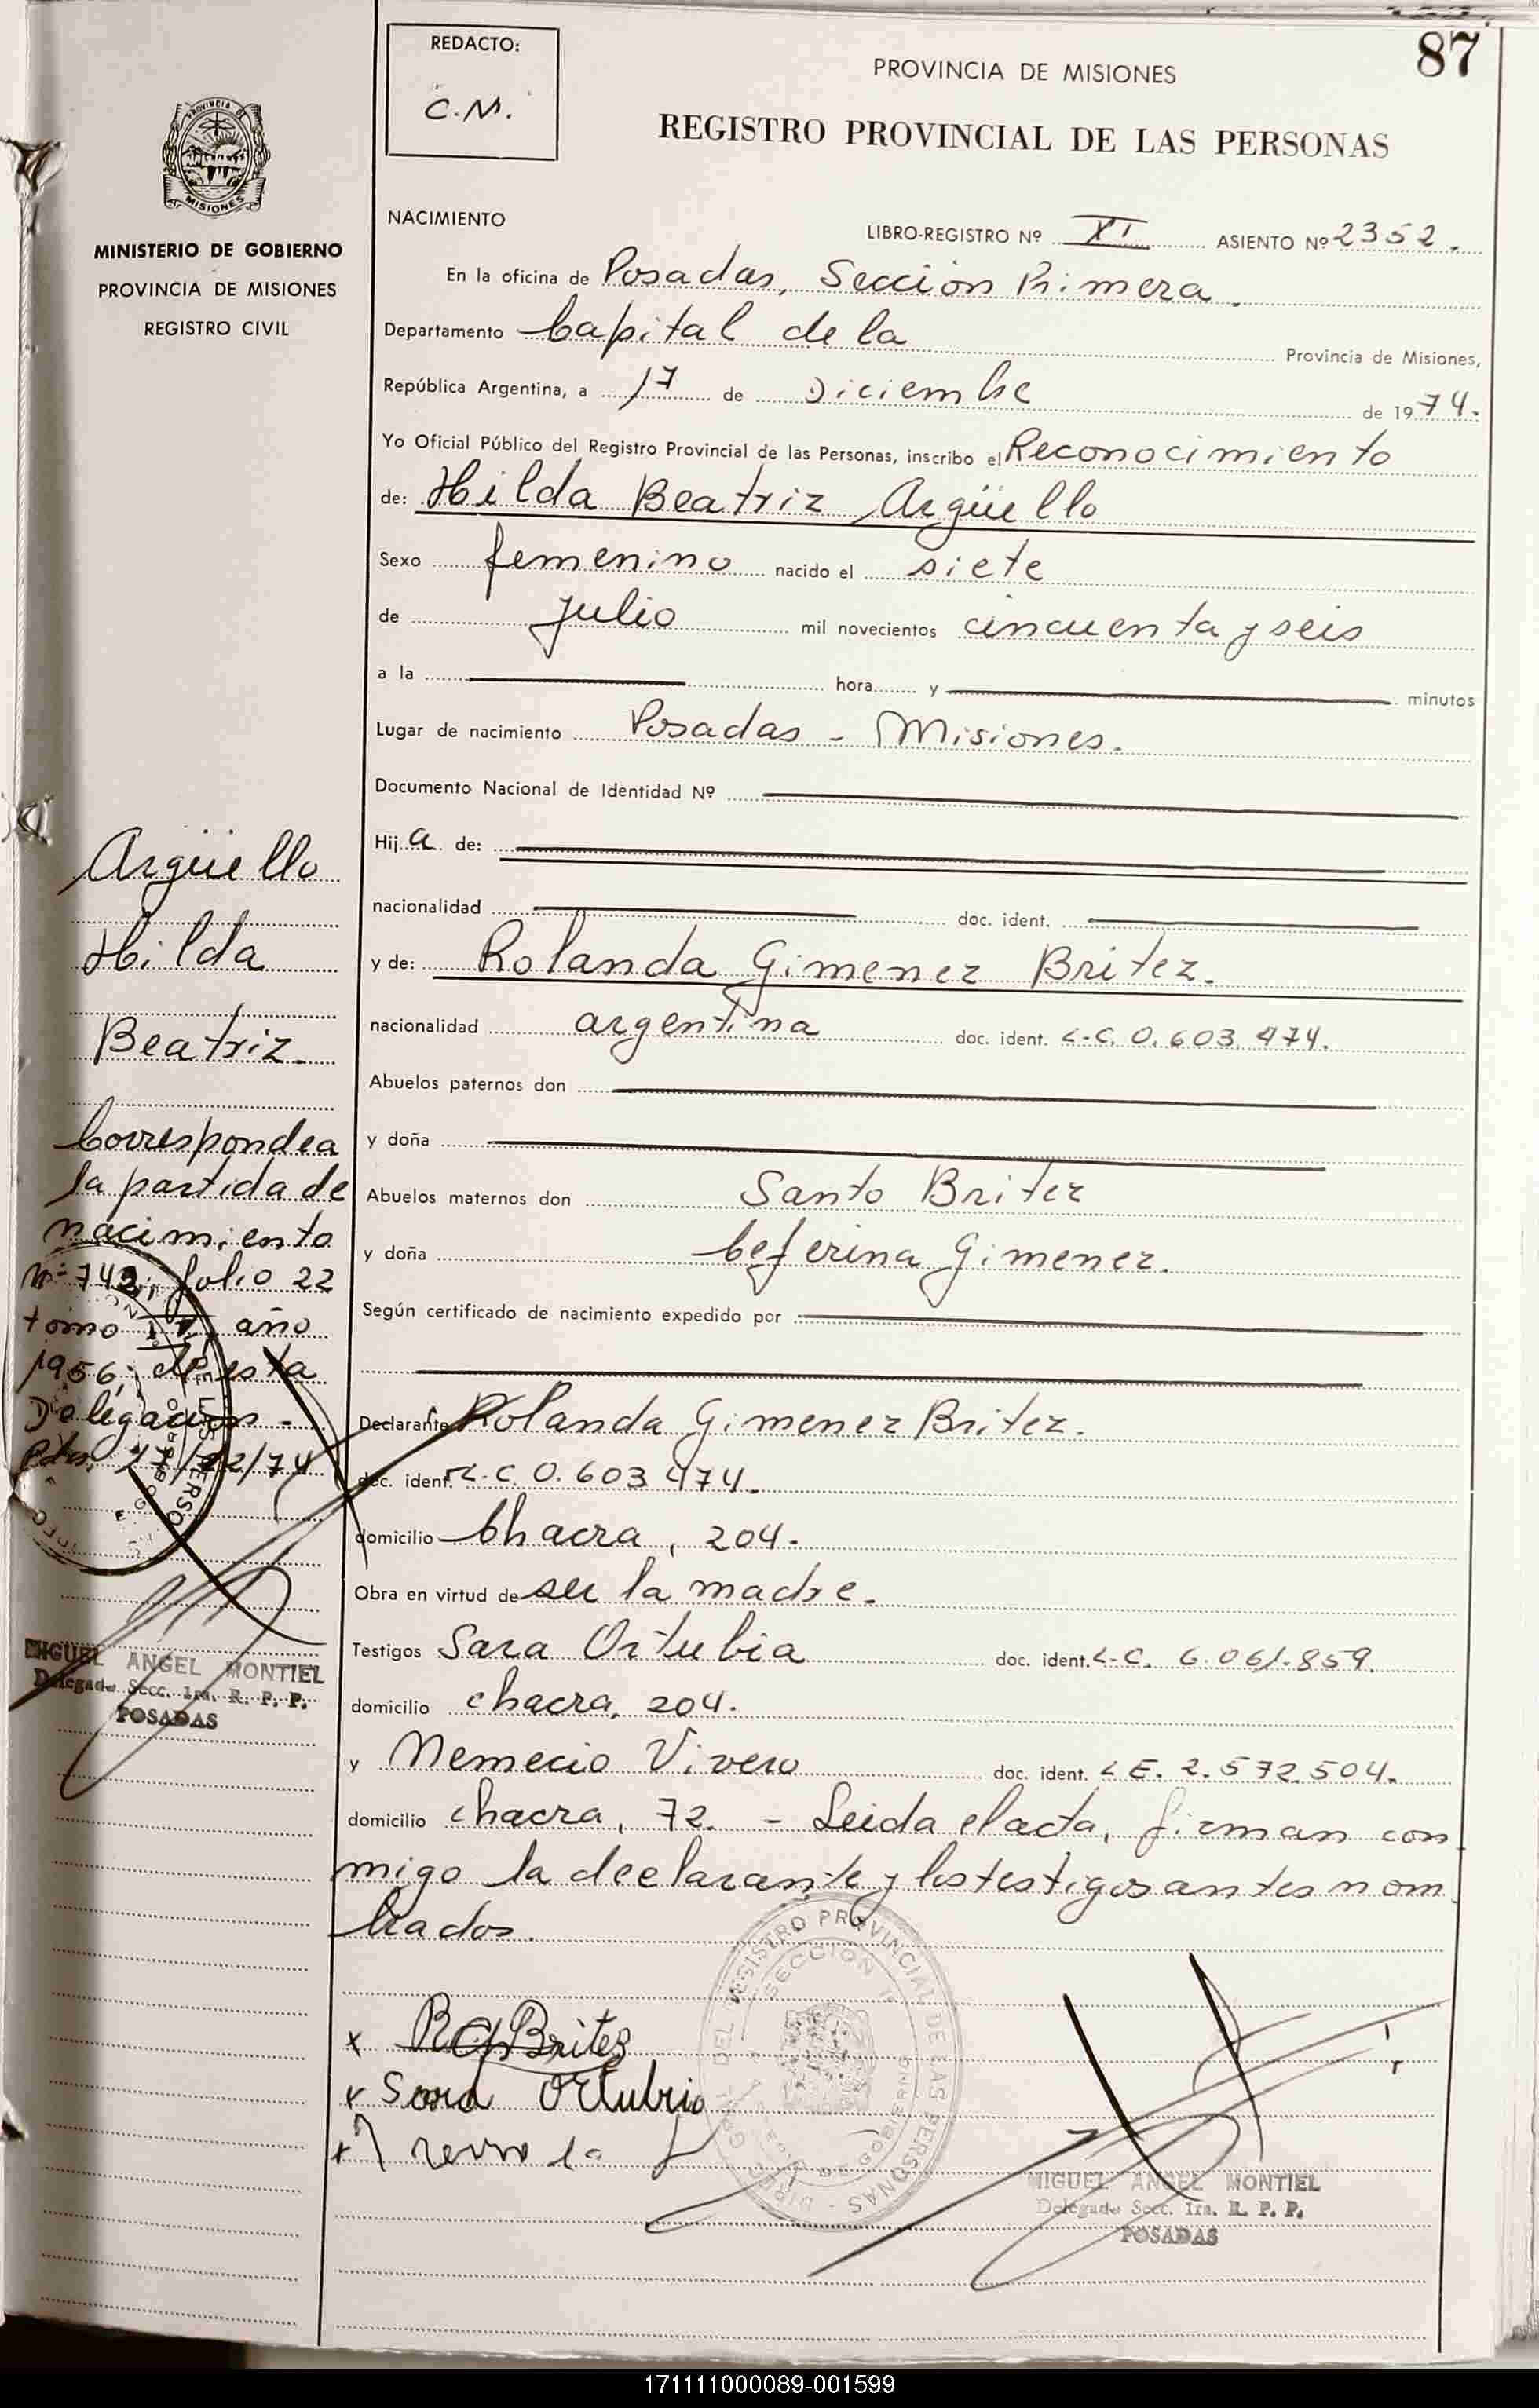 87
REDACTO:
C.M.
PROVINCIA DE MISIONES
REGISTRO PROVINCIAL DE LAS PERSONAS
PROVINCIA DE
MISIONES
MINISTERIO DE GOBIERNO
PROVINCIA DE MISIONES
REGISTRO CIVIL
NACIMIENTO
LIBRO-REGISTRO Nº XI ASIENTO Nº 2352.
En la oficina de Posadas, Sección Primera.
Departamento Capital de la Provincia de Misiones,
República Argentina, a 17 de Diciembre de 1974.
Yo Oficial Público del Registro Provincial de las Personas, inscribo el Reconocimiento
de: Hilda Beatriz Argüello
Sexo femenino nacido el siete
de julio mil novecientos cincuenta y seis
a la hora y minutos
Lugar de nacimiento Posadas - Misiones.
Documento Nacional de Identidad Nº
Hija de:
nacionalidad doc. ident.
y de: Rolanda Gimenez Britez.
nacionalidad argentina doc. ident. L-C. 0.603.474.
Abuelos paternos don
y doña
Abuelos maternos don Santo Britez
y doña Ceferina Gimenez.
Según certificado de nacimiento expedido por
Declarante Rolanda Gimenez Britez.
doc. ident. L.C. 0.603.474.
domicilio Chacra, 204.
Obra en virtud de ser la madre.
Testigos Sara Ortubia doc. ident. L-C. 6.061.859.
domicilio chacra, 204.
y Nemecio Vivero doc. ident. LE. 2.572.504.
domicilio chacra, 72. - Leida el acta, firman con
migo la declarante y los testigos antes nom
brados.
Argüello
Hilda
Beatriz.
Corresponde a
la partida de
nacimiento
nº 742, folio 22
tomo IV, año
1956, de esta
Delegación -
Pdas, 17/12/74
MIGUEL ANGEL MONTIEL
Delegado Secc. 1ra. R. P. P.
POSADAS
x RG Britez
x Sara Ortubia
x
DIRECCION GRAL DEL REGISTRO PROVINCIAL DE LAS PERSONAS
SECCION
MIGUEL ANGEL MONTIEL
Delegado Secc. 1ra. R. P. P.
POSADAS
171111000089-001599